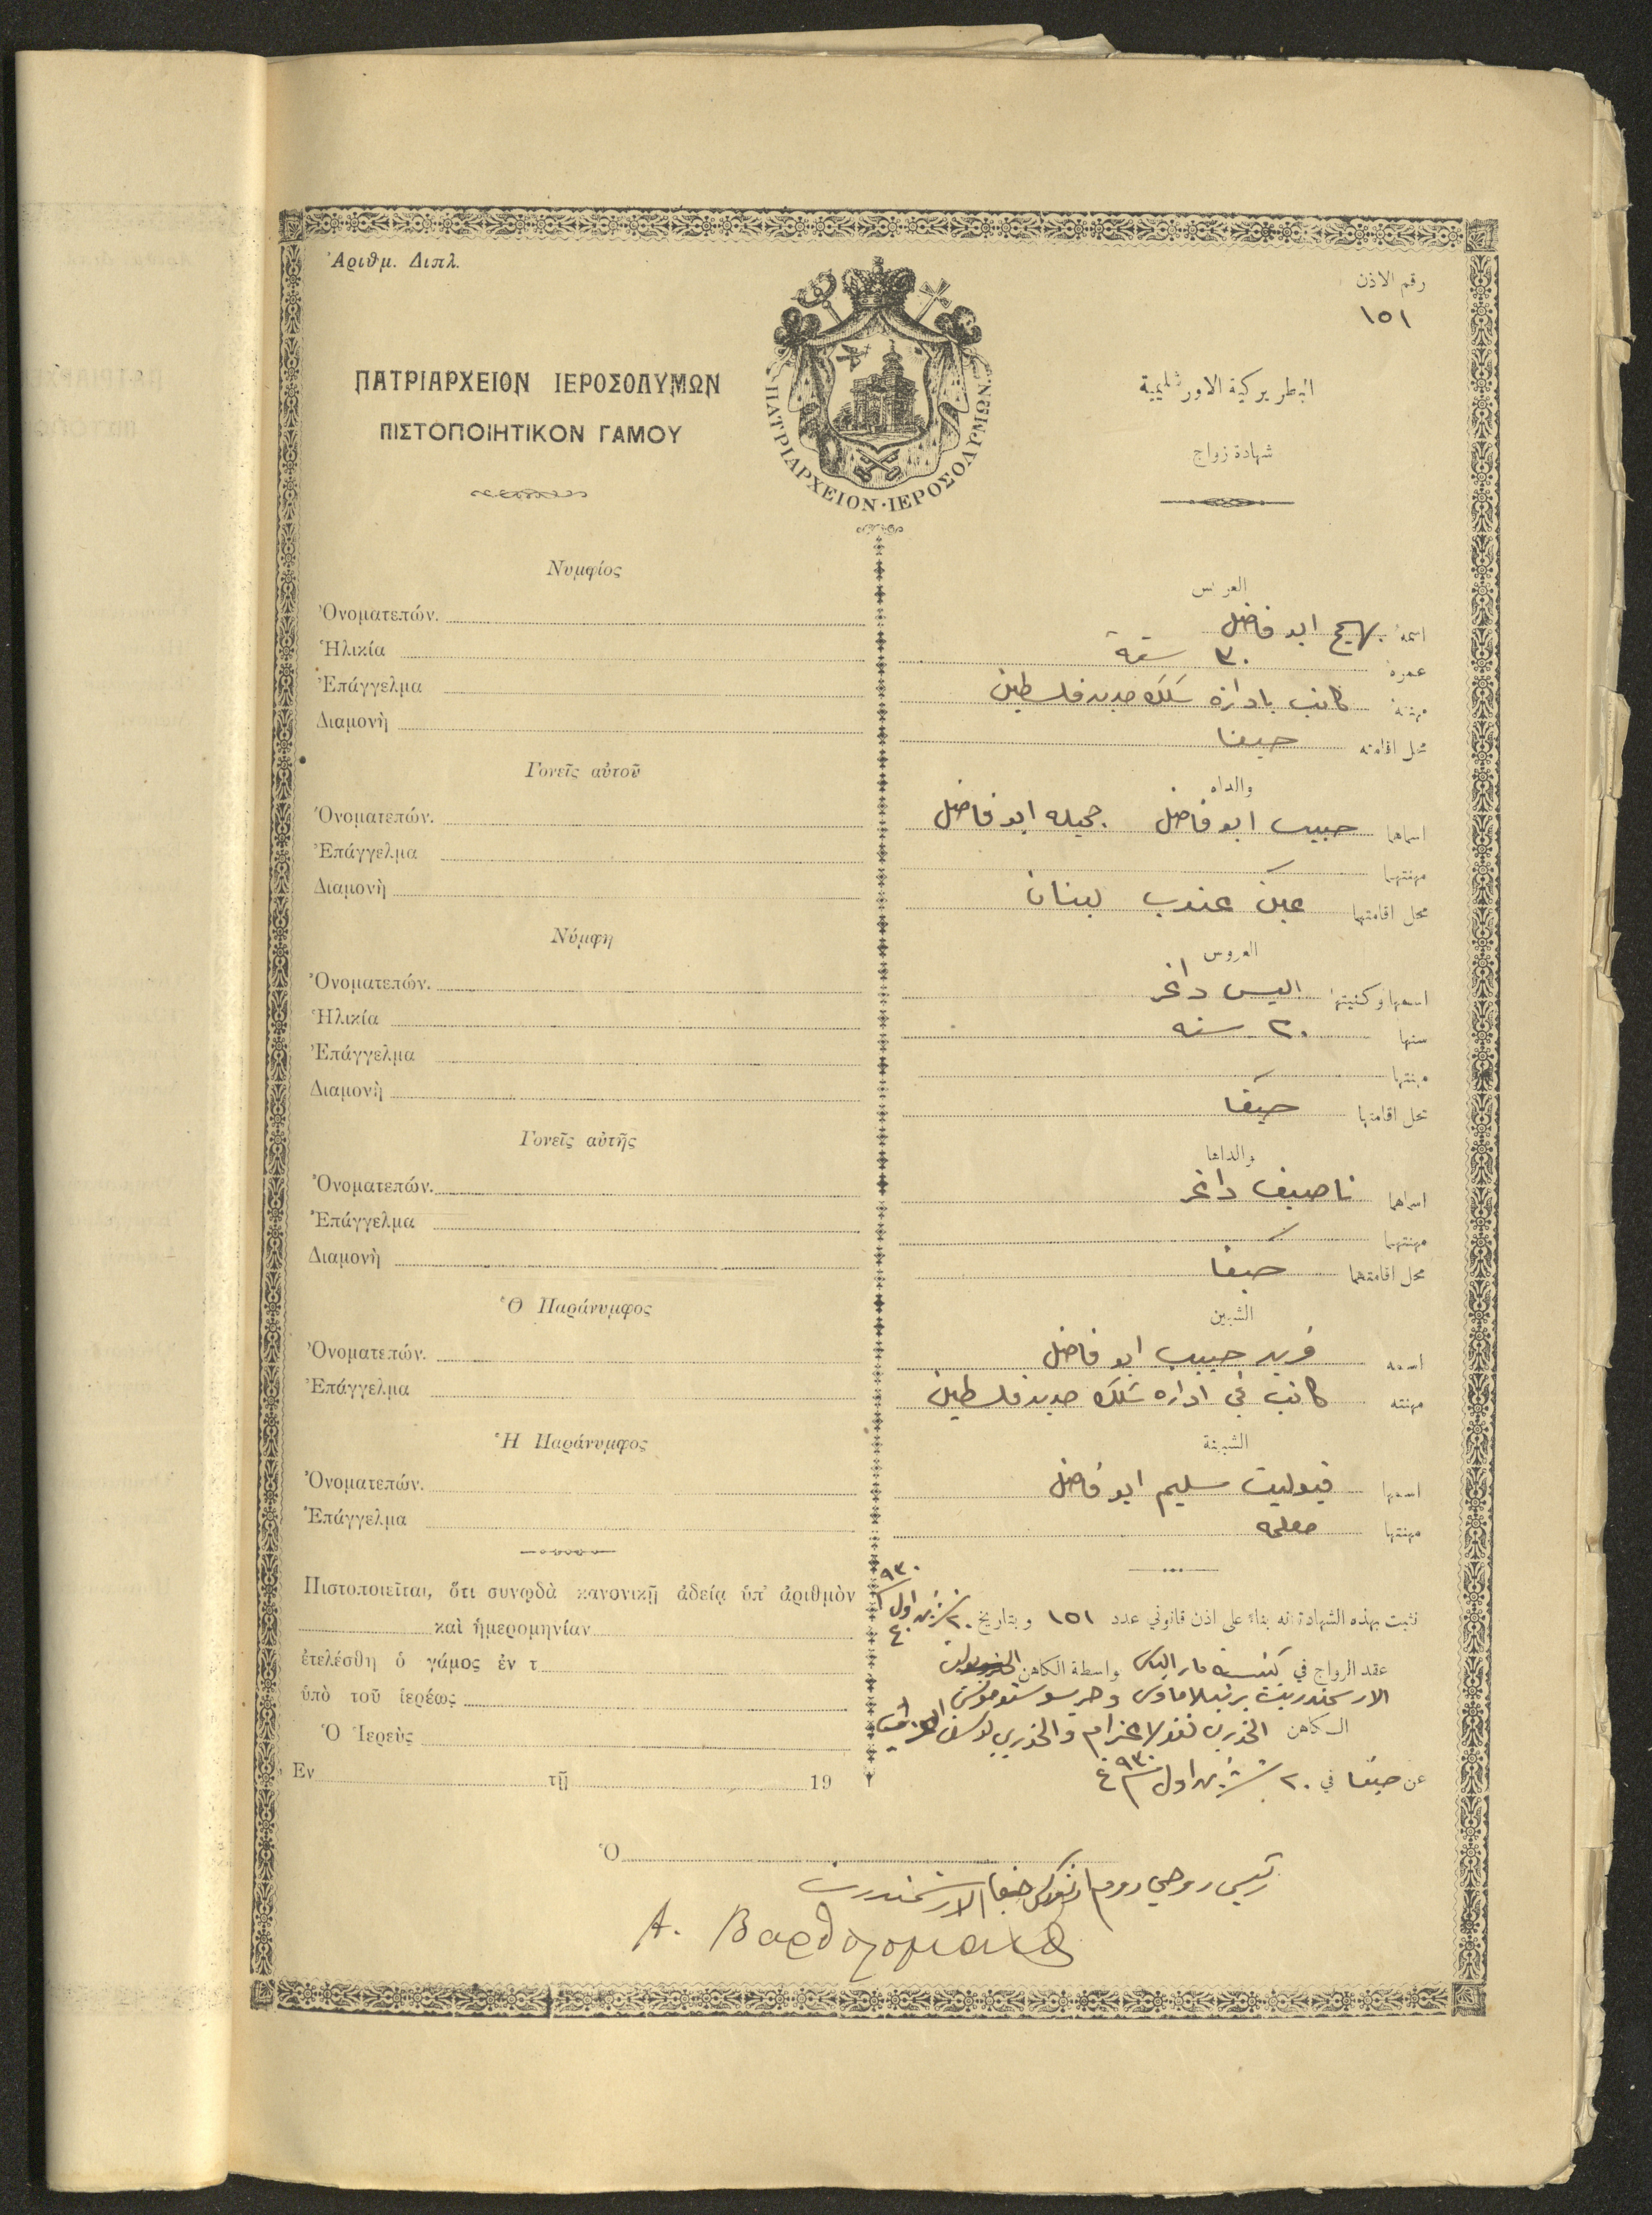 Ἀριθμ. Διπλ.
رقم الاذن
١٥١
ΠΑΤΡΙΑΡΧΕΙΟΝ ΙΕΡΟΣΟΛΥΜΩΝ
ΠΙΣΤΟΠΟΙΗΤΙΚΟΝ ΓΑΜΟΥ
ΠΑΤΡΙΑΡΧΕΙΟΝ·ΙΕΡΟΣΟΛΥΜΩΝ
البطريركية الاورشليمية
شهادة زواج
Νυμφίος
Ὀνοματεπών.
Ἡλικία
Ἐπάγγελμα
Διαμονὴ
Γονεῖς αὐτοῦ
Ὀνοματεπών.
Ἐπάγγελμα
Διαμονὴ
Νύμφη
Ὀνοματεπών.
Ἡλικία
Ἐπάγγελμα
Διαμονὴ
Γονεῖς αὐτῆς
Ὀνοματεπών.
Ἐπάγγελμα
Διαμονὴ
Ὁ Παράνυμφος
Ὀνοματεπών.
Ἐπάγγελμα
Ἡ Παράνυμφος
Ὀνοματεπών.
Ἐπάγγελμα
Πιστοποιεῖται, ὅτι συνῳδὰ κανονικῇ ἀδείᾳ ὑπ' ἀριθμὸν
καὶ ἡμερομηνίαν
ἐτελέσθη ὁ γάμος ἐν τ
ὑπὸ τοῦ ἱερέως
Ὁ Ἱερεὺς
Ἐν τῇ 19
Ὁ
العريس
اسمه بهيج ابو فاضل
عمره ٣٠ سنة
مهنته كاتب بادارة سكك حديد فلسطين
محل اقامته حيفا
والداه
اسماهما حبيب ابو فاضل جميله ابو فاضل
مهنتهما
محل اقامتهما عين عنوب لبنان
العروس
اسمها وكنيتها اليس داغر
سنها ٢٠ سنه
مهنتها
محل اقامتها حيفا
والداها
اسماهما ناصيف داغر
مهنتهما
محل اقامتهما حيفا
الشبين
اسمه فريد حبيب ابو فاضل
مهنته كاتب في اداره سكك حديد فلسطين
الشبينة
اسمها فيوليت سليم ابو فاضل
مهنتها معلمه
٩٣٠
نثبت بهذه الشهادة انه بناءً على اذن قانوني عدد ١٥١ وبتاريخ ٢٠ تشرين اول
عقد الزواج في كنيسة مار الياس واسطة الكاهن
الارشمندريت برثلاماوس وخريسوستوموس
الكاهن الخوري نقولا خزام والخوري
عن حيفا في ٢٠ تشرين اول سنة ٩٣٠ غ
رئيس روحي روم ارثوذكس حيفا الارشمندريت
Α. Βαρθολομαῖος